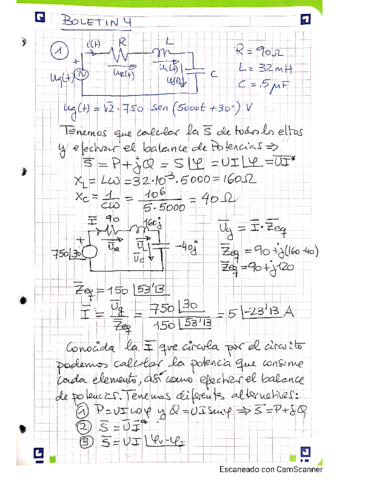 BOLETIN 4
1 i(t) R L
R = 90Ω
ug(t) + uR(t) uL(t) uC(t) C
L = 32mH
C = 5 μF
ug(t) = √2 · 750 sen (5000t + 30°) V
Tenemos que calcular la S̅ de todos los eltos
y efectuar el balance de Potencias ⇒
S̅ = P + jQ = S|φ = UI|φ = U̅I̅*
XL = Lω = 32·10⁻³·5000 = 160Ω
XC = 1/Cω = 10⁶/5·5000 = 40Ω
I̅ 90 160j
U̅g = I̅ · Z̅eq
750|30 + U̅R U̅L U̅C -40j
Z̅eq = 90 + j(160-40)
Z̅eq = 90 + j120
Z̅eq = 150 |53'13
I̅ = U̅g/Z̅eq = 750|30/150|53'13 = 5 |-23'13 A
Conocida la I̅ que circula por el circuito
podemos calcular la potencia que consume
cada elemento, así como efectuar el balance
de potencias. Tenemos diferentes alternativas:
1 P = UI cosφ y Q = UI senφ ⇒ S̅ = P + jQ
2 S̅ = U̅I̅*
3 S̅ = UI |φv-φI
Escaneado con CamScanner